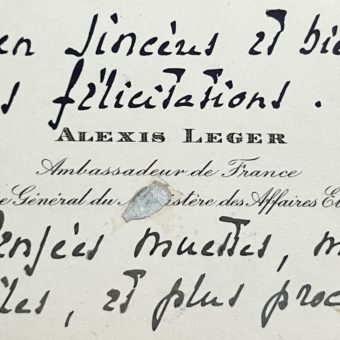 en sincères et bie
s félicitations.
ALEXIS LEGER
Ambassadeur de France
e Général du stère des Affaires Et
Pensées muettes, m
les, et plus proc